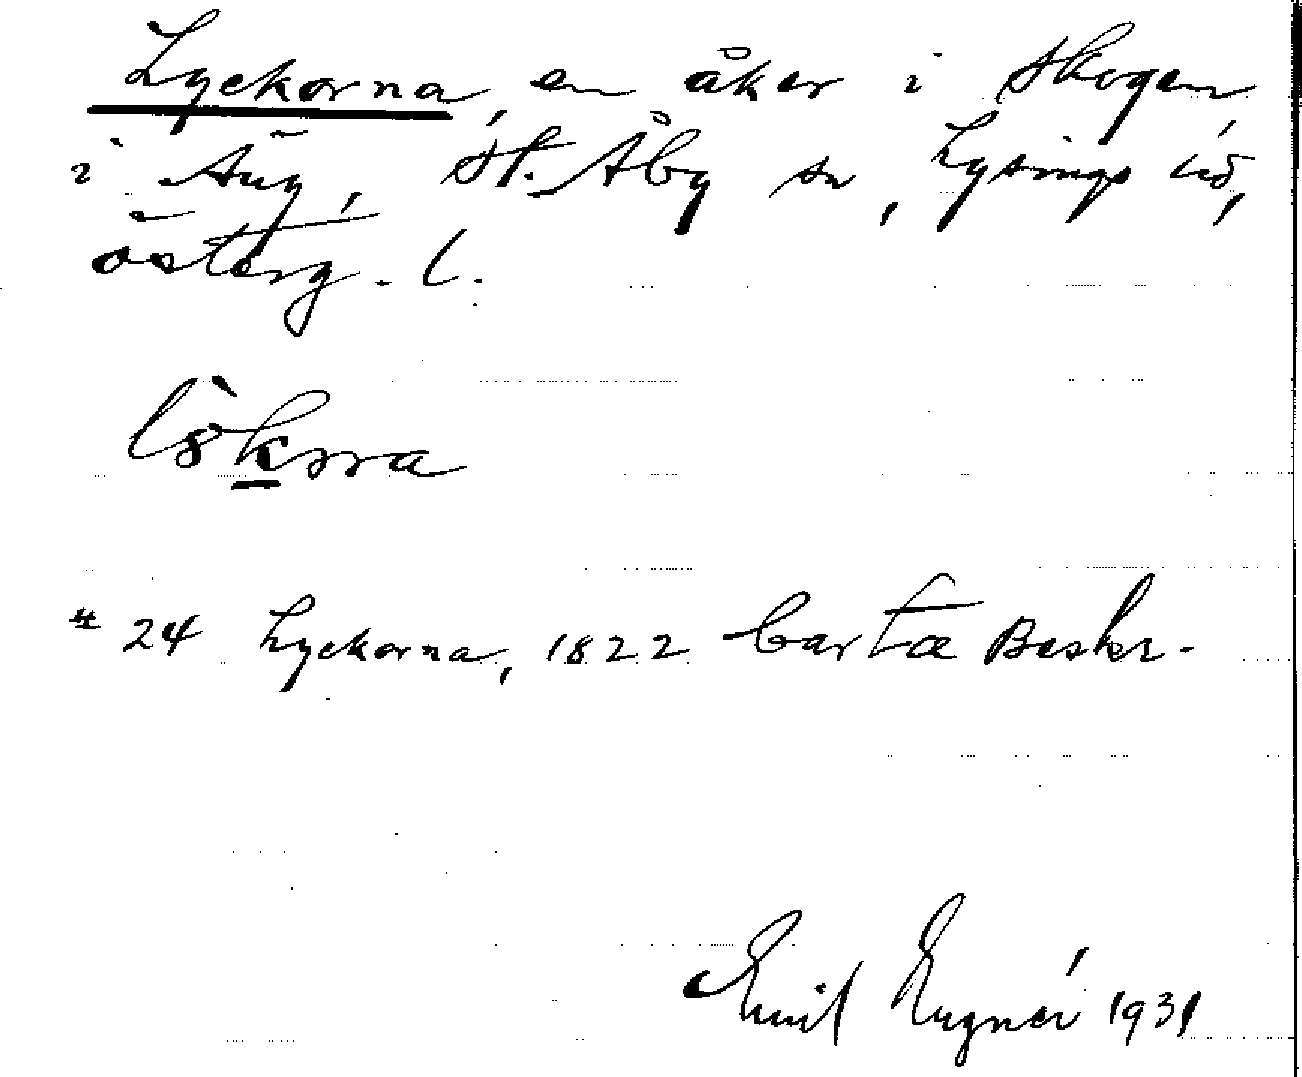 Lyckorna, en åker i skogen,
i Aug, St. Åby sn, Lysings hd,
österg. l.
24 Lyckorna, 1822 karta Beskr.
Emil Engnér 1931